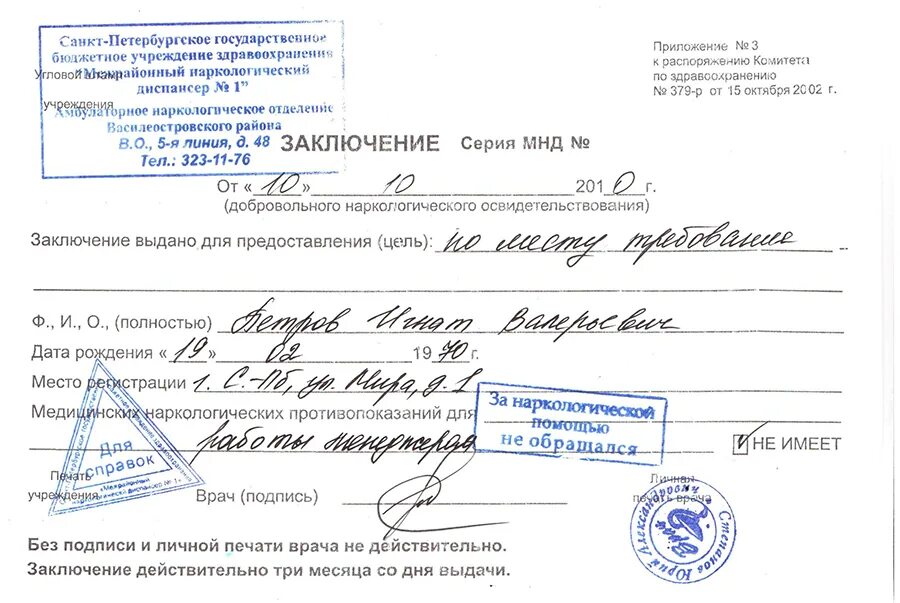 Санкт-Петербургское государственное
бюджетное учреждение здравоохранения
"Межрайонный наркологический
диспансер № 1"
Угловой штамп
учреждения
Амбулаторное наркологическое отделение
Василеостровского района
В.О., 5-я линия, д. 48
Тел.: 323-11-76
Приложение № 3
к распоряжению Комитета
по здравоохранению
№ 379-р от 15 октября 2002 г.
ЗАКЛЮЧЕНИЕ Серия МНД №
От «10» 10 2010 г.
(добровольного наркологического освидетельствования)
Заключение выдано для предоставления (цель): по месту требование
Ф., И., О., (полностью) Петров Игнат Валерьевич
Дата рождения «19» 02 1970 г.
Место регистрации г. С.-Пб, ул. Мира, д. 1
Медицинских наркологических противопоказаний для
работы менеджера
За наркологической
помощью
не обращался
НЕ ИМЕЕТ
Для
справок
"Межрайонный
наркологический диспансер № 1"
Печать
учреждения
Врач (подпись)
Личная
печать врача
Степанов Юрий Александрович
Врач
Без подписи и личной печати врача не действительно.
Заключение действительно три месяца со дня выдачи.